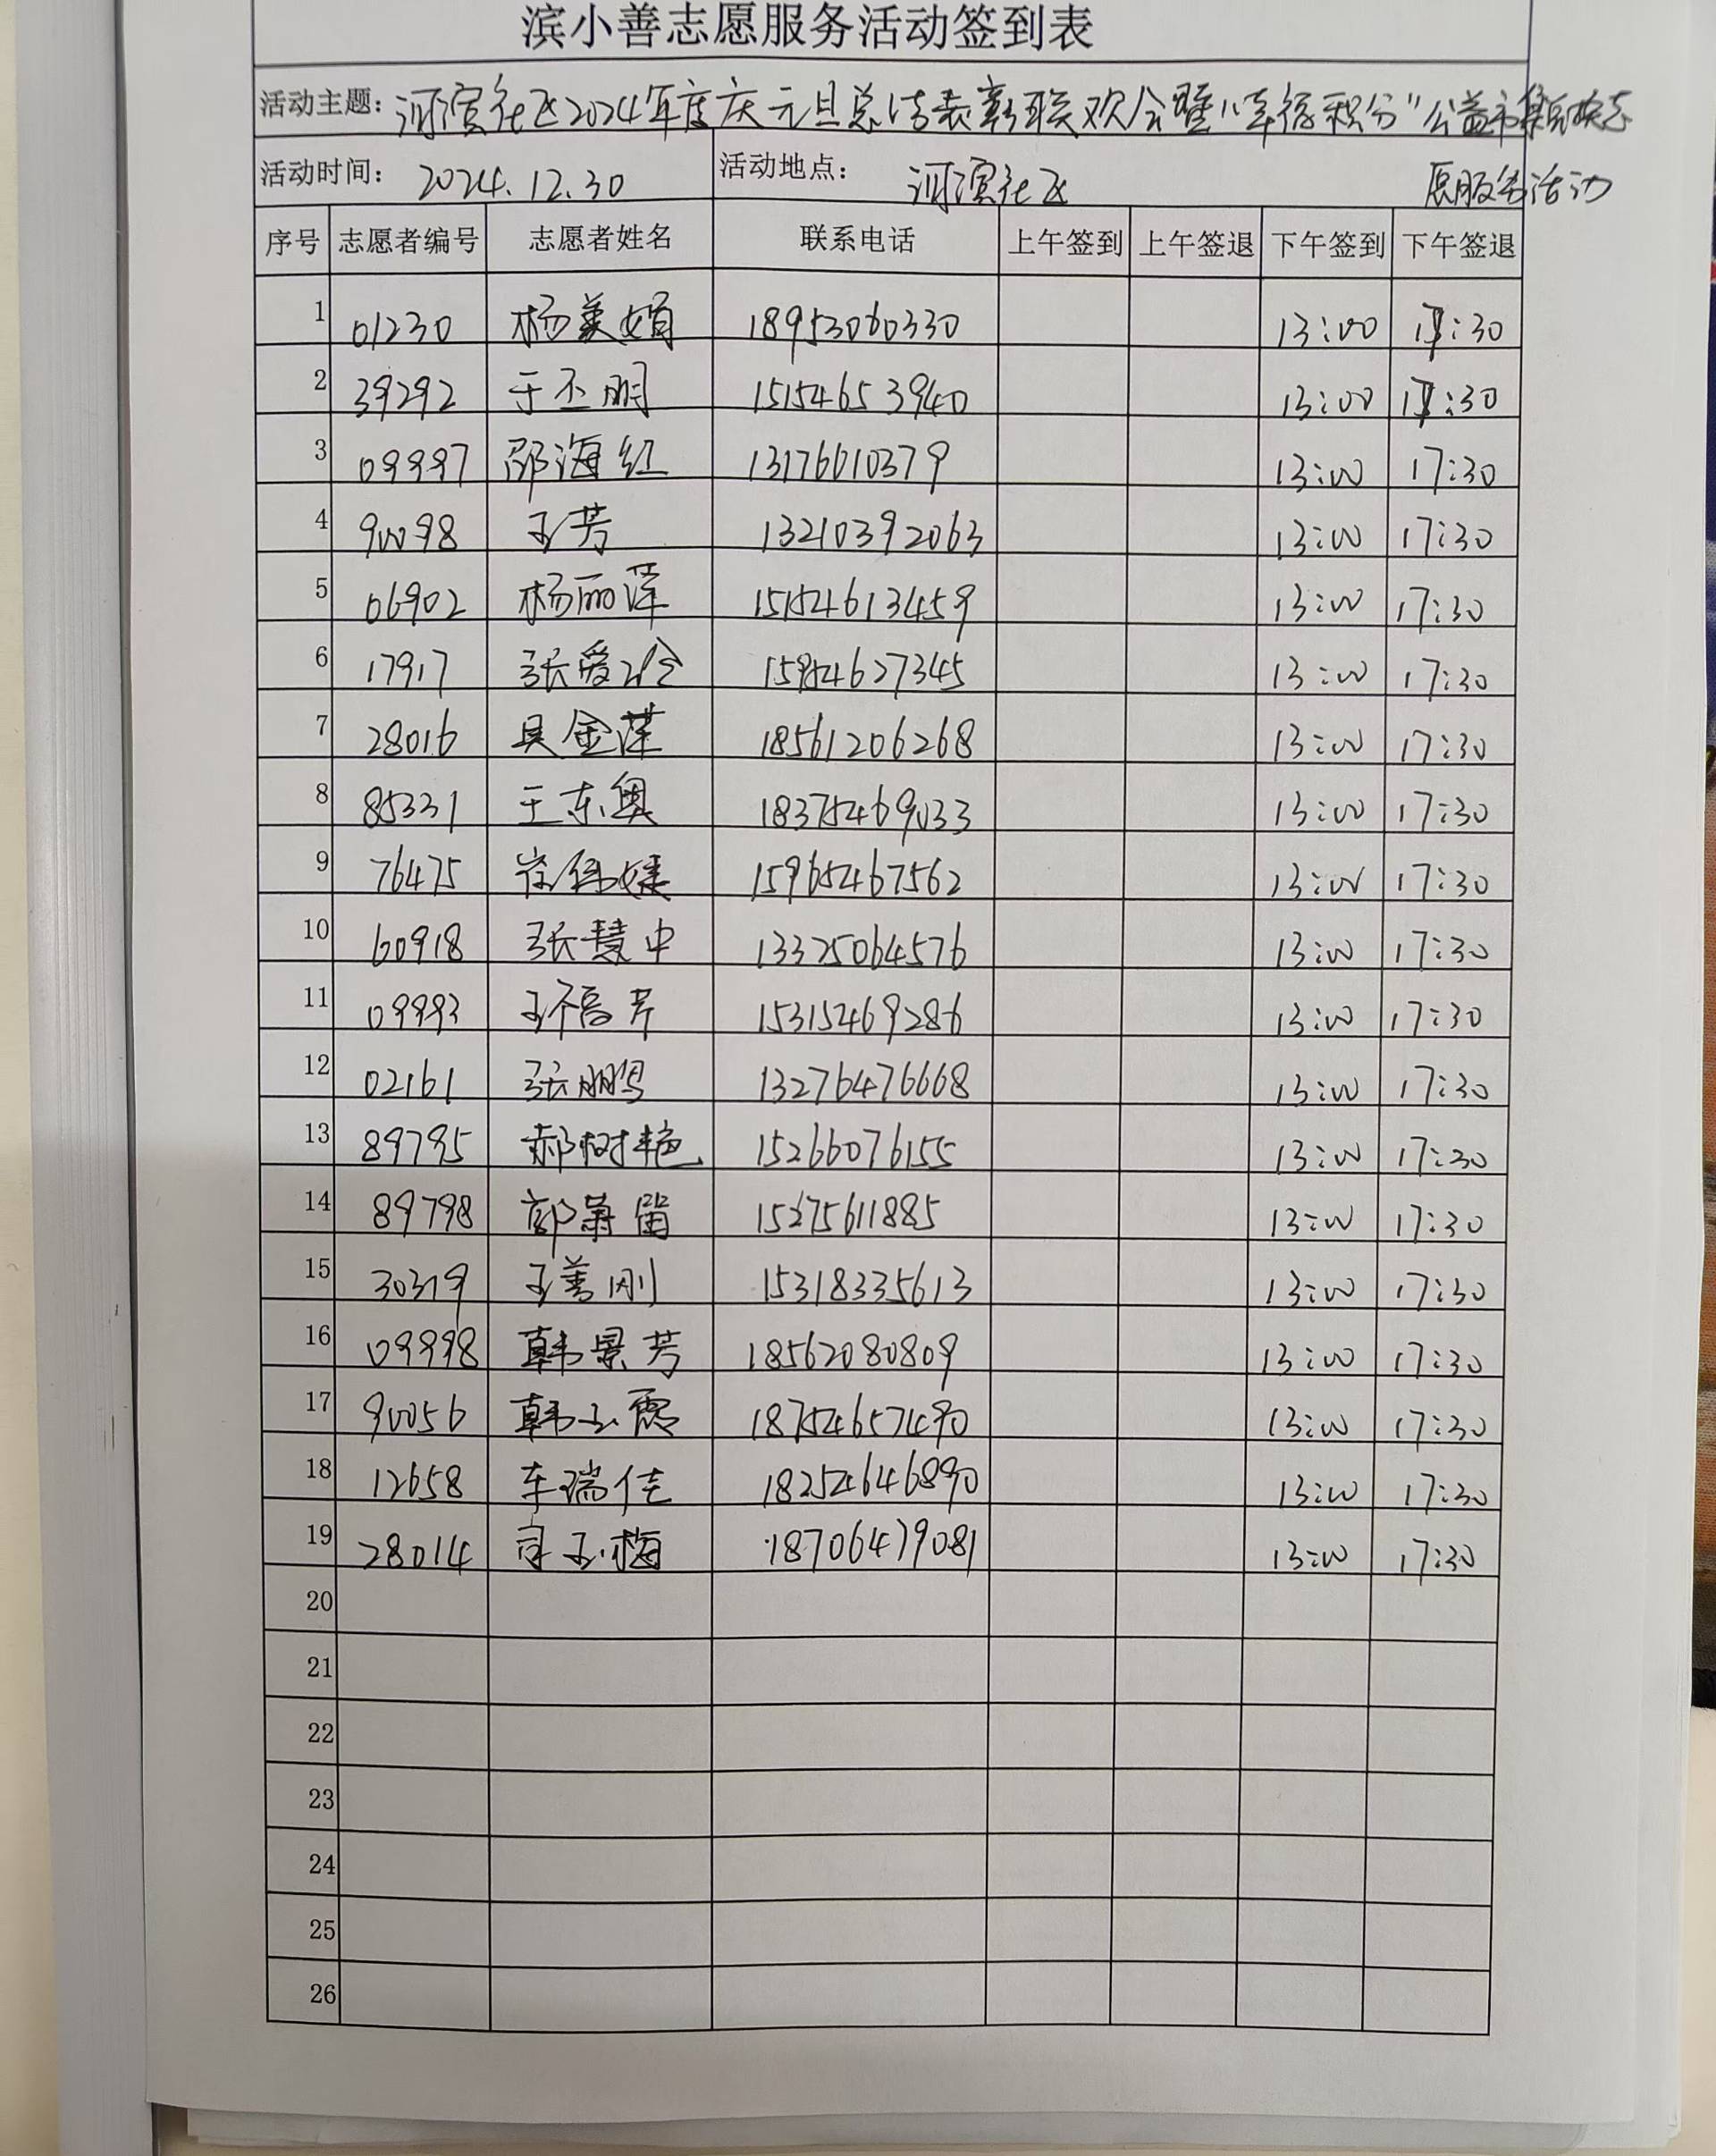 滨小善志愿服务活动签到表
活动主题：河滨社区2024年度庆元旦总结表彰联欢会暨"幸福积分"公益市集兑换志
愿服务活动
活动时间： 2024.12.30 活动地点： 河滨社区
序号 志愿者编号 志愿者姓名 联系电话 上午签到 上午签退 下午签到 下午签退
1 01230 杨美娟 18953060330 13:00 17:30
2 39292 于丕明 15154653940 13:00 17:30
3 09997 邵海红 13176610379 13:00 17:30
4 90098 王芳 13210392063 13:00 17:30
5 06902 杨丽萍 15154613459 13:00 17:30
6 17917 张爱玲 15954627345 13:00 17:30
7 28016 吴金萍 18561206268 13:00 17:30
8 85331 王东奥 18375469033 13:00 17:30
9 76475 崔伟婕 15965467562 13:00 17:30
10 60918 张慧中 13325064576 13:00 17:30
11 09993 王福芹 15315469286 13:00 17:30
12 02161 张鹏 13276476668 13:00 17:30
13 89795 郝树艳 15266076155 13:00 17:30
14 89798 郭萧笛 15275611885 13:00 17:30
15 30319 王善刚 15318335613 13:00 17:30
16 09998 韩景芳 18562080809 13:00 17:30
17 90056 韩玉霞 18754657490 13:00 17:30
18 12658 车瑞佳 18254646890 13:00 17:30
19 28014 玉梅 18706479081 13:00 17:30
20
21
22
23
24
25
26